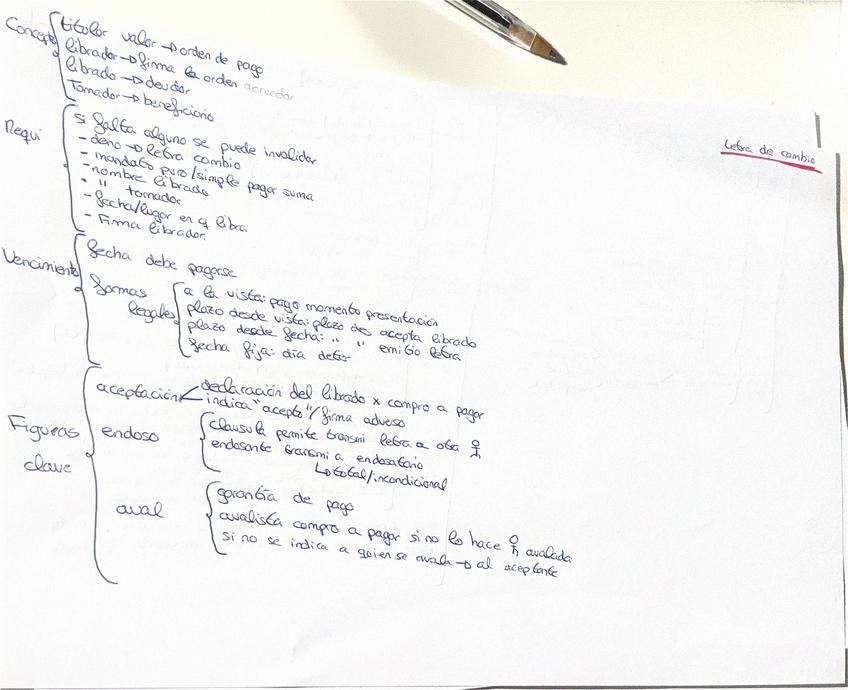 Letra de cambio
Concepto
titulor valor → orden de pago
librador → firma la orden acreedor
librado → deudor
Tomador → beneficiario
Requi
si falta alguno se puede invalidar
- deno → letra cambio
- mandato puro/simple pagar suma
- nombre librado
- " tomador
- fecha/lugar en q libra
- Firma librador.
Vencimiento
fecha debe pagarse
formas legales
a la vista: pago momento presentación
plazo desde vista: plazo des acepta librado
plazo desde fecha: " " emitio letra
fecha fija: día deter
Figuras clave
aceptación
declaración del librado x compro a pagar
indica "acepto"/firma adveso
endoso
clausula permite transmi letra a otra
endosante transmi a endosatario
↳ total/incondicional
aval
garantía de pago
avalista compro a pagar si no lo hace avalada
si no se indica a quien se avala → al aceptante